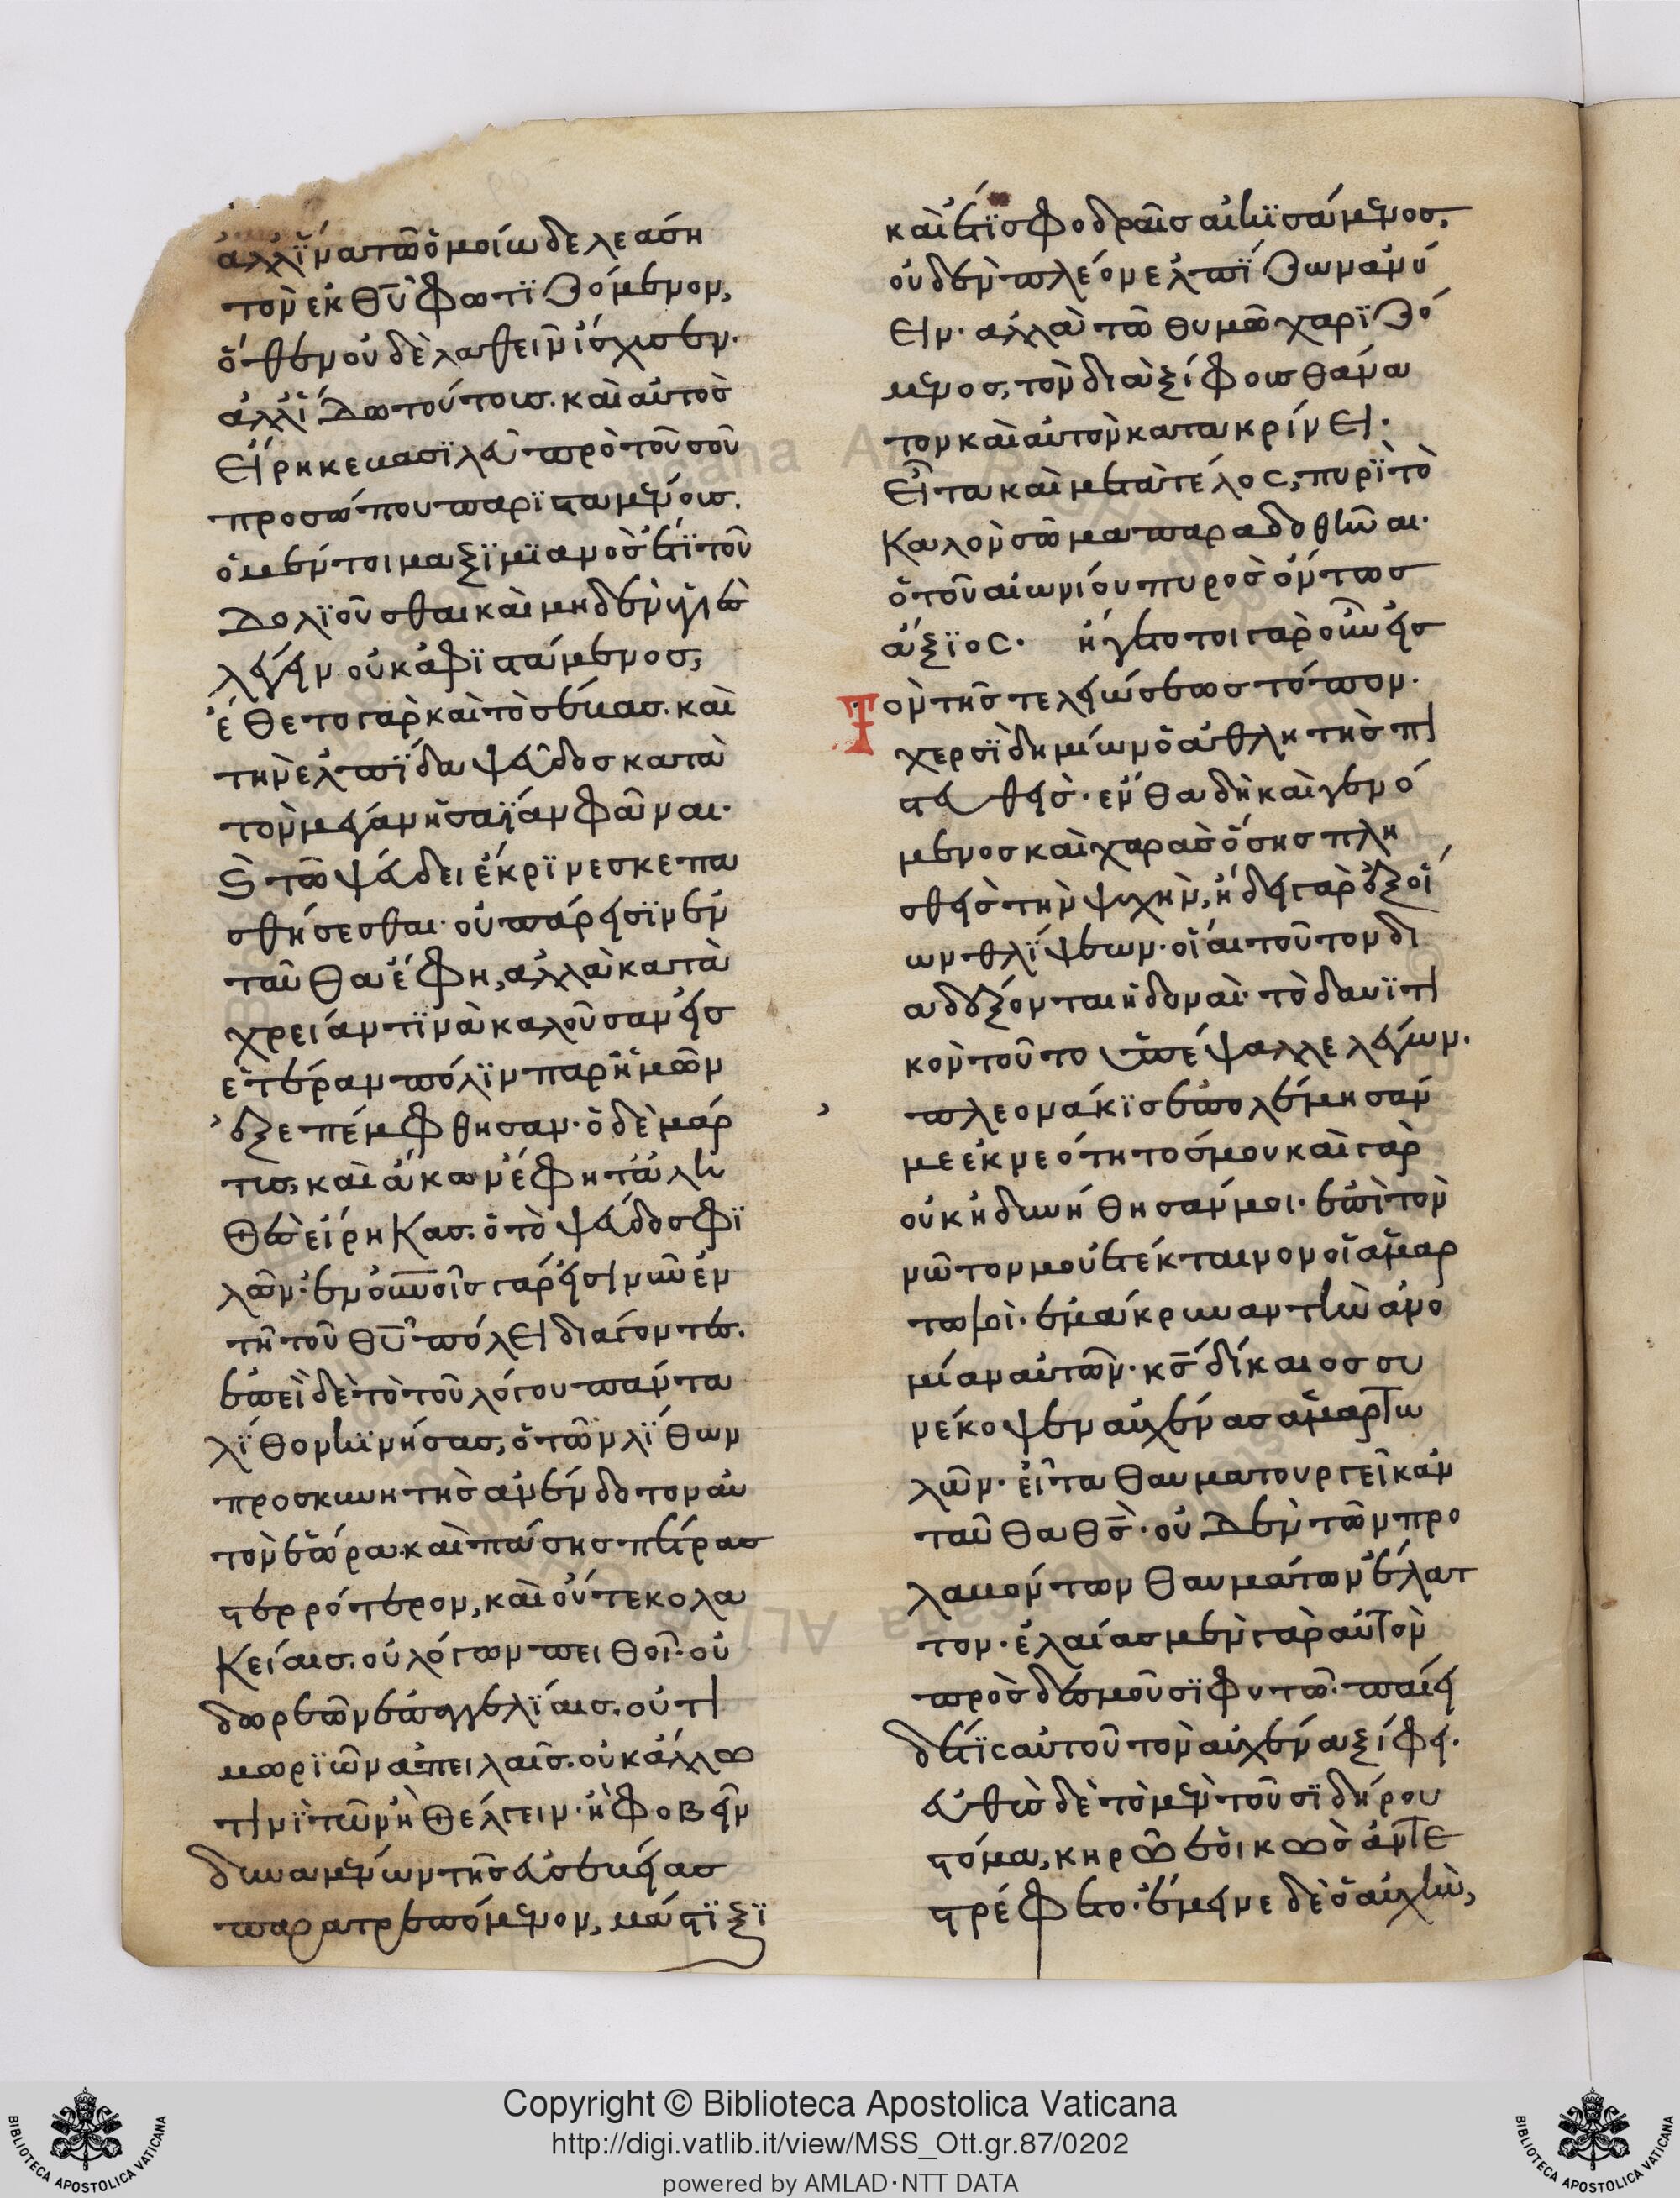 ἀλλ' ἵνα τῶ ὁμοίω δελεάση
τὸν ἐκ θῦ φωτιζόμενον,
ὅθεν οὐδὲ λαθεῖν ἴσχυσεν.
ἀλλ' ἐπὶ τούτοις. καὶ αὐτὸς
εἴρηκε βασιλεῦ πρὸ τοῦ σοῦ
προσώπου παρισταμένοις.
ὁ μέντοι μαξιμιανὸς ἐπὶ τοῦ
δολιοῦσθαι καὶ μηδὲν ὑγιὲς
λέγειν οὐκ ἀφιστάμενος,
ἔθετο γὰρ καὶ τὸ σέβας. καὶ
τὴν ἐλπίδα ψεῦδος κατὰ
τὸν μέγαν ἡσαΐαν φᾶναι.
τῶ ψεύδει ἔκρινε σκεπα
σθήσεσθαι. οὐ πάρεισιν ἐν
ταῦθα ἔφη, ἀλλὰ κατὰ
χρείαν τινὰ καλοῦσαν εἰς
ἑτέραν πόλιν παρ' ἡμῶν
ἐξεπέμφθησαν. ὁ δὲ μάρ
τυς, καὶ ἄκων ἔφη τἀλη
θὲς εἴρηκας. ὁ τὸ ψεῦδος φι
λῶν. ἐν οὐνοῖς γάρ εἰσι νῦν ἐν
τῆ τοῦ θῦ πόλει διάγοντες.
ἐπεὶ δὲ τὸ τοῦ λόγου πάντα
λίθον κινήσας, ὁ τῶν λίθων
προσκυνητὴς ἀνένδοτον αὐ
τὸν ἑώρα. καὶ πάσης πέτρας
στερρότερον, καὶ οὔτε κολα
κείαις. οὐ λόγων πειθοῖ. οὐ
δωρεῶν ἐπαγγελίαις. οὐ τι
μωριῶν ἀπειλαῖς. οὐκ ἄλλω
τινὶ τῶν ἢ θέλγειν. ἢ φοβεῖν
δυναμένων τῆς εὐσεβείας
παρατρεπόμενον, μάστιξι
καὶ ἔτι σφοδραῖς αἰκισάμενος,
οὐδὲν πλέον ἐλπίζων ἀνύ
ειν. ἀλλὰ τῶ θυμῶ χαριζό
μενος, τὸν διὰ ξίφους θάνα
τον καὶ αὐτὸν κατακρίνει.
εἶτα καὶ μετὰ τέλος, πυρὶ τὸ
καλὸν σῶμα παραδοθῆναι.
ὁ τοῦ αἰωνίου πυρὸς ὄντως
ἄξιος. ἤγετο τοιγαροῦν εἰς
τὸν τῆς τελειώσεως τόπον.
χερσὶ δημίων ὁ ἀθλητὴς πι
στευθείς. ἔνθα δὴ καὶ γενό
μενος καὶ χαρᾶς ὅσης πλη
σθεὶς τὴν ψυχὴν, ἤδει γὰρ ἐξ οἵ
ων θλίψεων. οἷαι τοῦτον δι
αδέξονται ἡδοναὶ. τὸ δαυϊτι
κὸν τοῦτο ὑπέψαλλε λέγων.
πλεονάκις ἐπολέμησάν
με ἐκ νεότητός μου καὶ γὰρ
οὐκ ἠδυνήθησάν μοι. ἐπὶ τὸν
νῶτόν μου ἐτέκταινον οἱ ἁμαρ
τωλοὶ. ἐμάκρυναν τὴν ἀνο
μίαν αὐτῶν. κς δίκαιος συ
νέκοψεν αὐχένας ἁμαρτω
λῶν. εἶτα θαυματουργεῖ κἀν
ταῦθα θς. οὐδὲν τῶν προ
λαβόντων θαυμάτων ἔλατ
τον. ἐλαίας μὲν γὰρ αὐτὸν
πρὸς δεσμοῦσι φυτῶ. παίει
δέ τις αὐτοῦ τὸν αὐχένα ξίφει.
εὐθὺς δὲ τὸ μὲν τοῦ σιδήρου
στόμα, κηρῶ ἐοικὼς ἀντε
στρέφετο. ἔμεινε δὲ ὁ αὐχὴν,
Copyright © Biblioteca Apostolica Vaticana
http://digi.vatlib.it/view/MSS_Ott.gr.87/0202
powered by AMLAD·NTT DATA
BIBLIOTECA APOSTOLICA VATICANA
BIBLIOTECA APOSTOLICA VATICANA